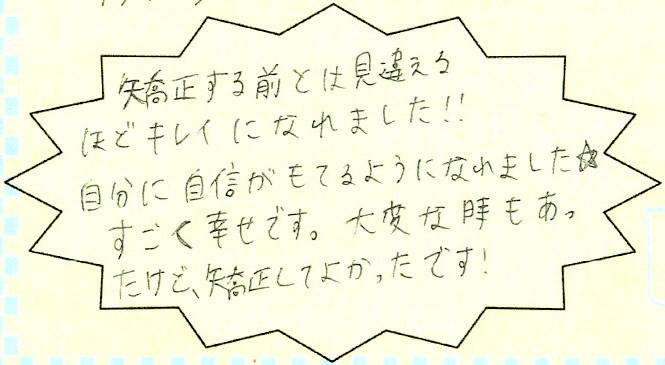 矯正する前とは見違える
ほどキレイになれました!!
自分に自信がもてるようになれました☆
すごく幸せです。大変な時もあっ
たけど、矯正してよかったです!